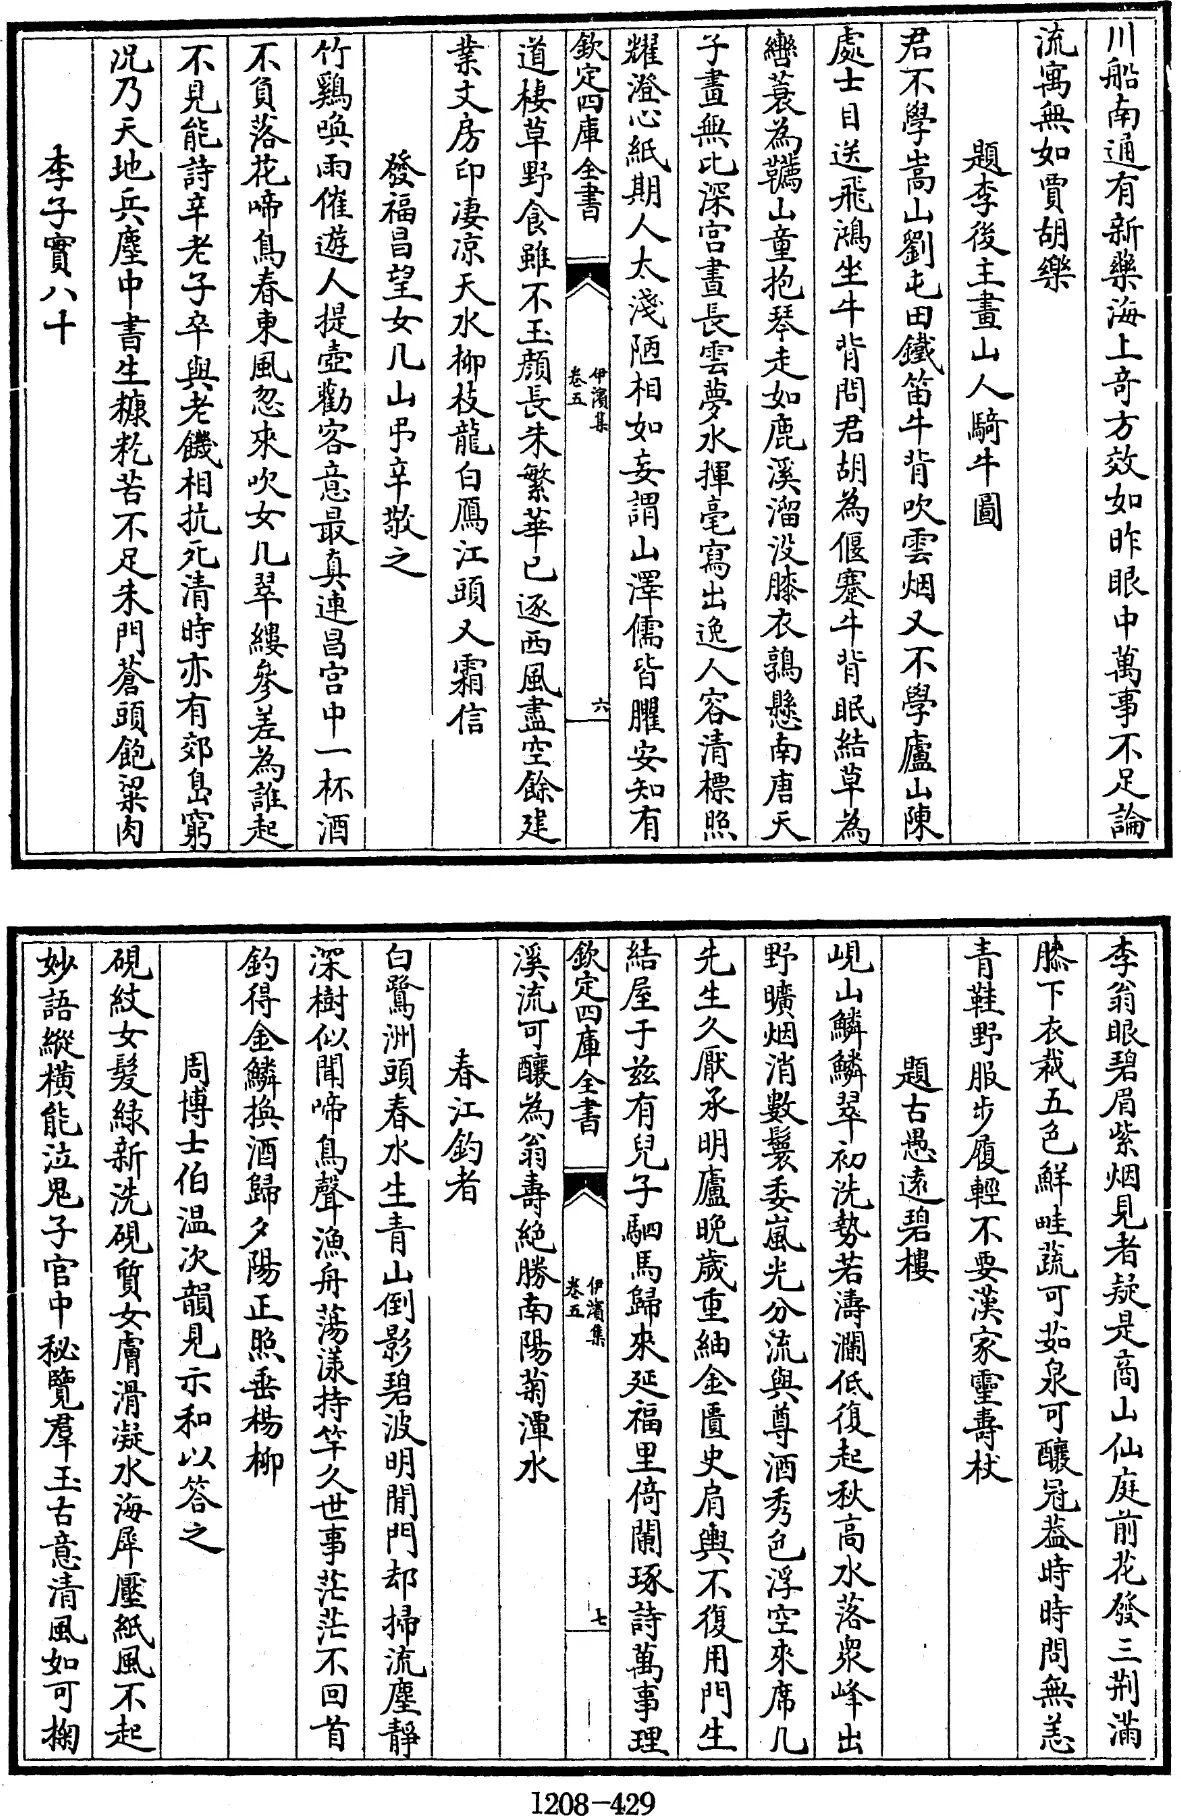 川船南通有新藥海上奇方效如昨眼中萬事不足論
流寓無如賈胡樂
題李後主畫山人騎牛圖
君不學嵩山劉屯田鐵笛牛背吹雲烟又不學廬山陳
處士目送飛鴻坐牛背問君胡為偃蹇牛背眠結草為
轡蓑為韉山童抱琴走如鹿溪溜没膝衣鶉懸南唐天
子畫無比深宫晝長雲夢水揮毫寫出逸人容清標照
耀澄心紙期人太淺陋相如妄謂山澤儒皆臞安知有
欽定四庫全書
伊濱集
卷五
六
道棲草野食雖不玉顔長朱繁華已逐西風盡空餘建
業文房印凄凉天水柳枝龍白鴈江頭又霜信
發福昌望女几山弔辛敬之
竹鷄喚雨催遊人提壺勸客意最真連昌宫中一杯酒
不負落花啼鳥春東風忽來吹女几翠縷參差為誰起
不見能詩辛老子卒與老饑相抗死清時亦有郊島窮
况乃天地兵塵中書生糠籺苦不足朱門蒼頭飽粱肉
李子實八十
李翁眼碧眉紫烟見者疑是商山仙庭前花發三荆滿
膝下衣裁五色鮮畦蔬可茹泉可釀冠蓋時時問無恙
青鞋野服步履輕不要漢家靈壽杖
題古愚遠碧樓
峴山鱗鱗翠初洗勢若濤瀾低復起秋高水落衆峰出
野曠烟消數鬟委嵐光分流與尊酒秀色浮空來席几
先生久厭承明廬晚歲重紬金匱史肩輿不復用門生
結屋于兹有兒子駟馬歸來延福里倚闌琢詩萬事理
欽定四庫全書
伊濱集
卷五
七
溪流可釀為翁壽絶勝南陽菊潭水
春江釣者
白鷺洲頭春水生青山倒影碧波明閒門却掃流塵静
深樹似聞啼鳥聲漁舟蕩漾持竿久世事茫茫不回首
釣得金鱗換酒歸夕陽正照垂楊柳
周博士伯温次韻見示和以答之
硯紋女髮緑新洗硯質女膚滑凝水海犀壓紙風不起
妙語縱横能泣鬼子官中秘覽羣玉古意清風如可掬
1208-429